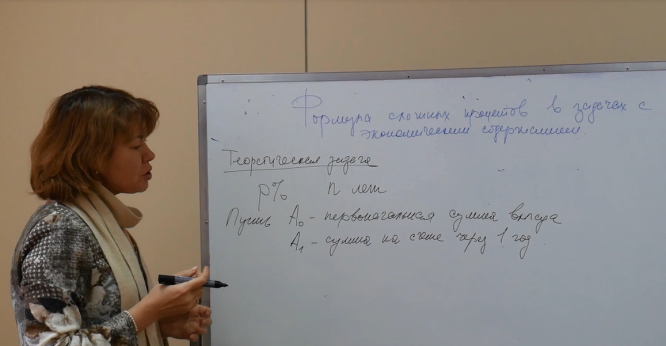 Формула сложных процентов в задачах с
экономическим содержанием.
Теоретическая задача
p% n лет
Пусть A₀ - первоначальная сумма вклада
A₁ - сумма на счете через 1 год.